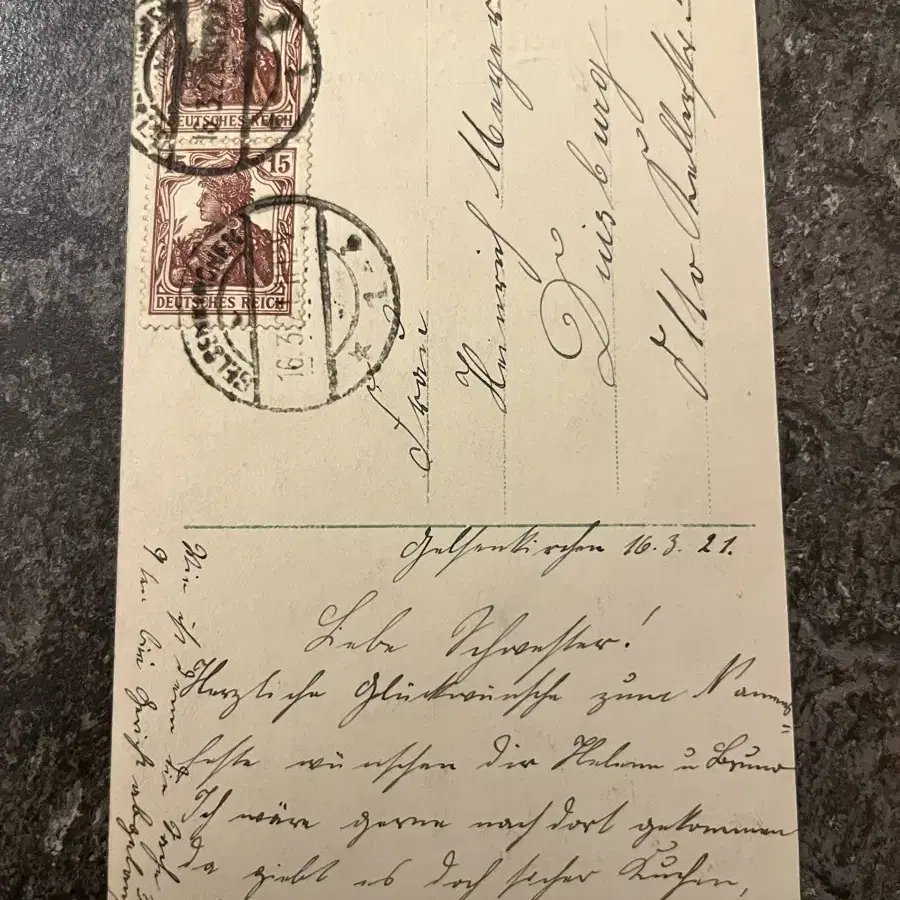 DEUTSCHES REICH
15 15
DEUTSCHES REICH
GELSENKIRCHEN
16.3.
* 1
Frau
Heinrich Mayer
Duisburg
Otto
Gelsenkirchen 16.3.21.
Liebe Schwester!
Herzliche Glückwünsche zum Namens=
feste wünschen dir Helene u Bruno
Ich wäre gerne nach dort gekommen
da giebt es doch sicher Kuchen,
Wie ich
bei